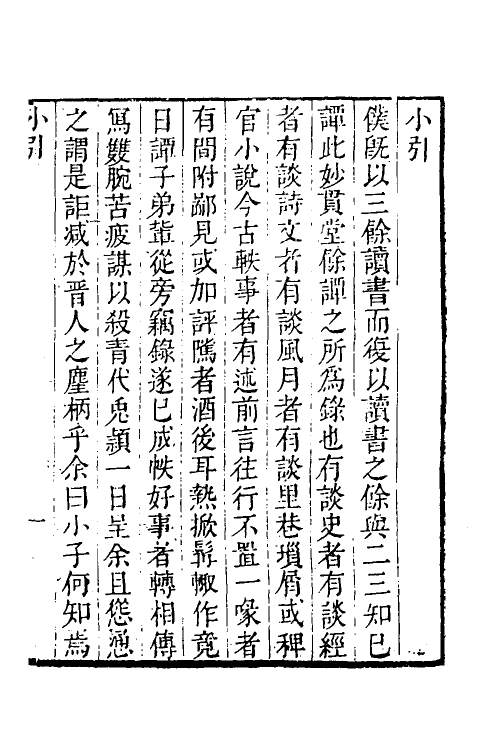 小引
僕旣以三餘讀書而復以讀書之餘與二三知已
譚此妙貫堂餘譚之所爲錄也有談史者有談經
者有談詩文者有談風月者有談里巷瑣屑或稗
官小說今古軼事者有述前言往行不置一喙者
有間附鄙見或加評隲者酒後耳熱掀髯輙作竟
日譚子弟輩從旁竊錄遂已成帙好事者轉相傳
寫雙腕苦疲謀以殺青代兎頴一日呈余且慫慂
之謂是詎减於晋人之麈柄乎余曰小子何知焉
小引
一